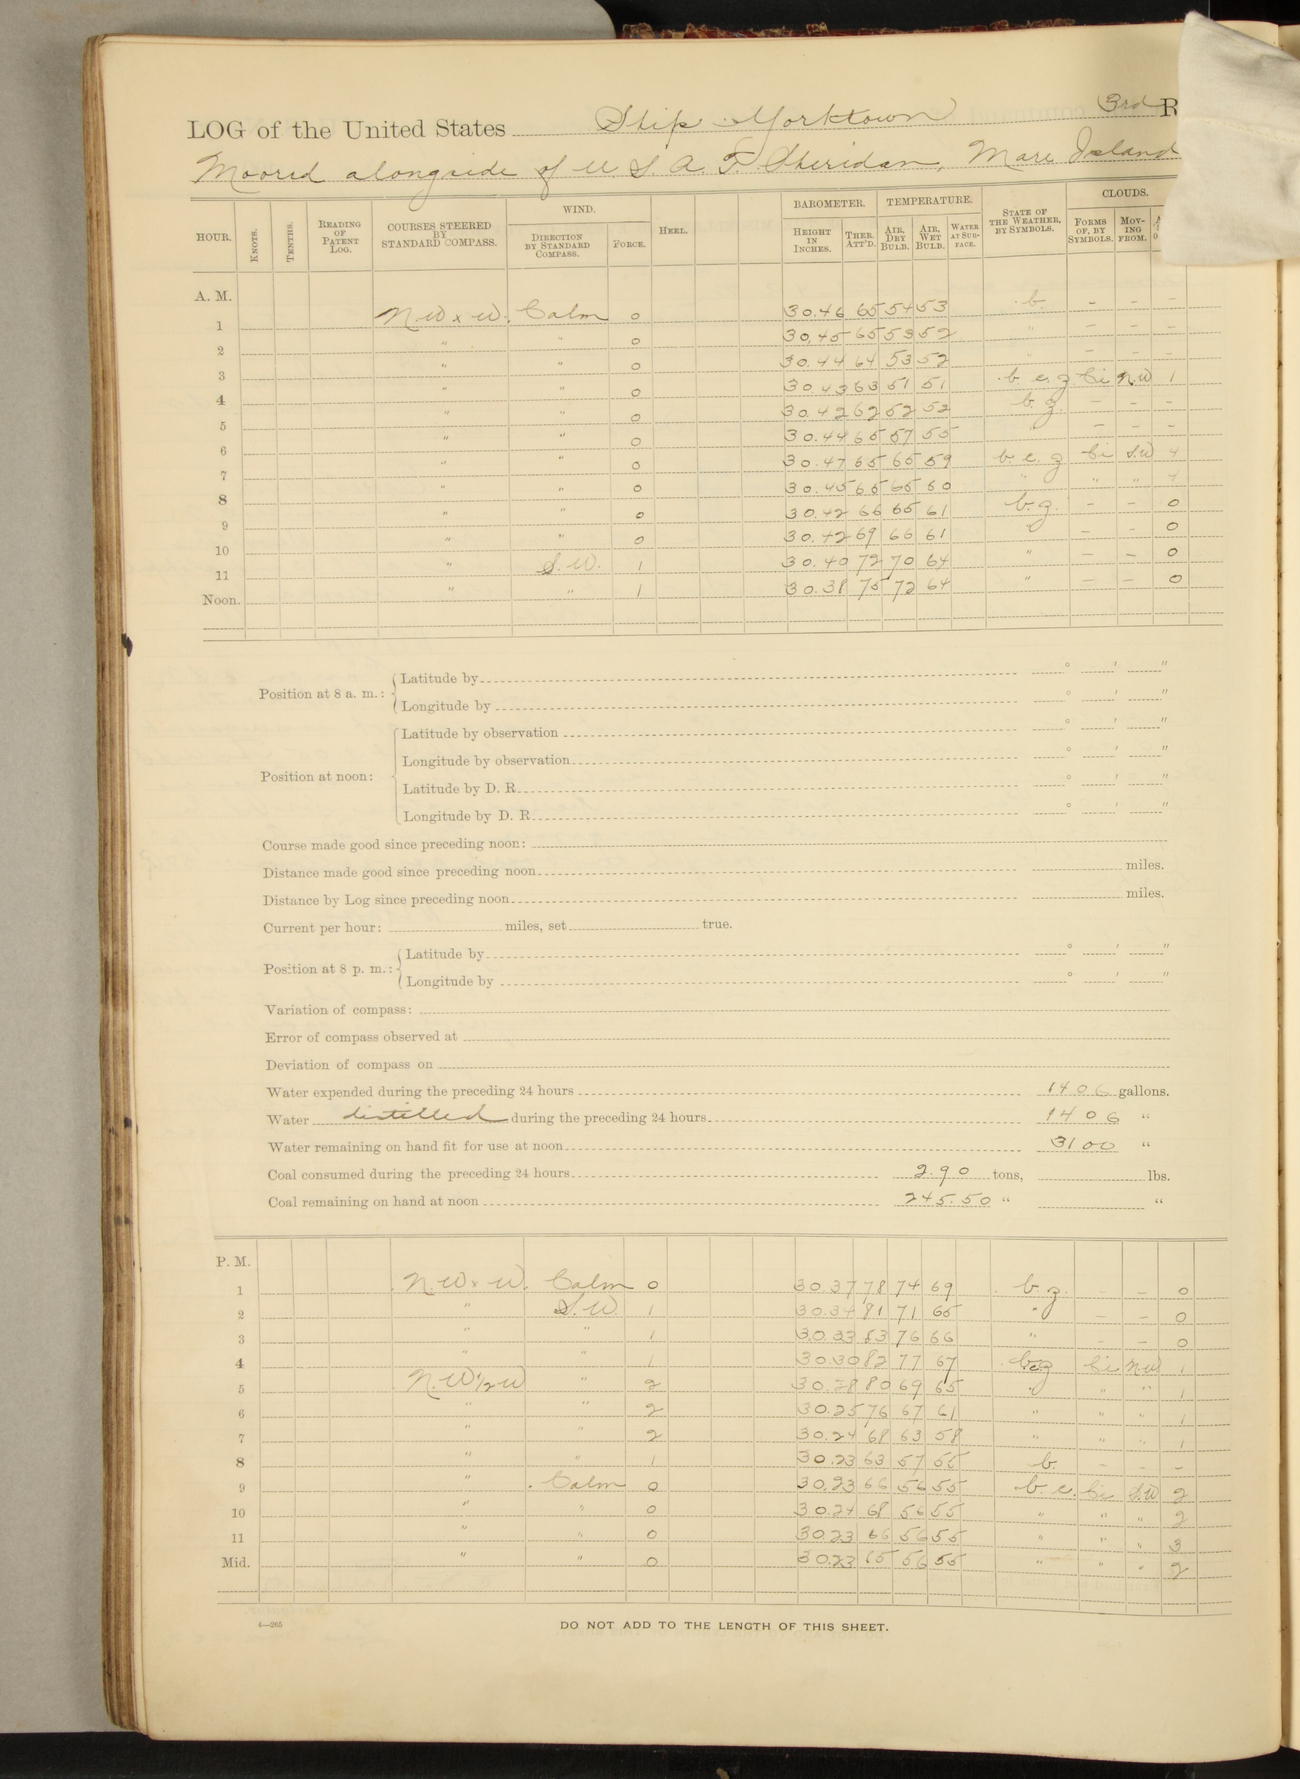 LOG of the United States Ship Yorktown 3rd R
Moored alongside of U. S. A. T. Sheridan, Mare Island
HOUR. KNOTS. TENTHS. READING OF PATENT LOG. COURSES STEERED BY STANDARD COMPASS. WIND. DIRECTION BY STANDARD COMPASS. FORCE. HEEL. BAROMETER. HEIGHT IN INCHES. THER. ATT'D. TEMPERATURE. AIR, DRY BULB. AIR, WET BULB. WATER AT SURFACE. STATE OF THE WEATHER, BY SYMBOLS. CLOUDS. FORMS OF, BY SYMBOLS. MOVING FROM.
A. M.
1 N.W x W. Calm 0 30.46 65 54 53 b. - - -
2 " " 0 30.45 65 53 52 " - - -
3 " " 0 30.44 64 53 52 " - - -
4 " " 0 30.43 63 51 51 b. c. z Ci N.W 1
5 " " 0 30.42 62 52 52 b. z. - - -
6 " " 0 30.44 65 57 55 " - - -
7 " " 0 30.47 65 65 59 b. c. z Ci S.W 4
8 " " 0 30.45 65 65 60 " " " 4
9 " " 0 30.42 66 65 61 b. z. - - 0
10 " " 0 30.42 69 66 61 " - - 0
11 " S.W. 1 30.40 72 70 64 " - - 0
Noon. " " 1 30.38 75 72 64 " - - 0
Position at 8 a. m.: Latitude by ° ′ ″
Longitude by ° ′ ″
Position at noon: Latitude by observation ° ′ ″
Longitude by observation ° ′ ″
Latitude by D. R. ° ′ ″
Longitude by D. R. ° ′ ″
Course made good since preceding noon:
Distance made good since preceding noon miles.
Distance by Log since preceding noon miles.
Current per hour: miles, set true.
Position at 8 p. m.: Latitude by ° ′ ″
Longitude by ° ′ ″
Variation of compass:
Error of compass observed at
Deviation of compass on
Water expended during the preceding 24 hours 1406 gallons.
Water distilled during the preceding 24 hours 1406 "
Water remaining on hand fit for use at noon 3100 "
Coal consumed during the preceding 24 hours 2.90 tons, lbs.
Coal remaining on hand at noon 245.50 " "
P. M.
1 N.W x W. Calm 0 30.37 78 74 69 b. z. - - 0
2 " S.W. 1 30.34 81 71 65 " - - 0
3 " " 1 30.33 83 76 66 " - - 0
4 " " 1 30.30 82 77 67 bcz Ci N.W 1
5 N.W 1/2 W " 2 30.28 80 69 65 " " " 1
6 " " 2 30.25 76 67 61 " " " 1
7 " " 2 30.24 68 63 58 " " " 1
8 " " 1 30.23 63 57 55 b. - - -
9 " Calm 0 30.23 66 56 55 b. c. Ci S.W 2
10 " " 0 30.24 68 56 55 " " " 2
11 " " 0 30.23 66 56 55 " " " 3
Mid. " " 0 30.23 65 56 55 " " " 2
4—265
DO NOT ADD TO THE LENGTH OF THIS SHEET.